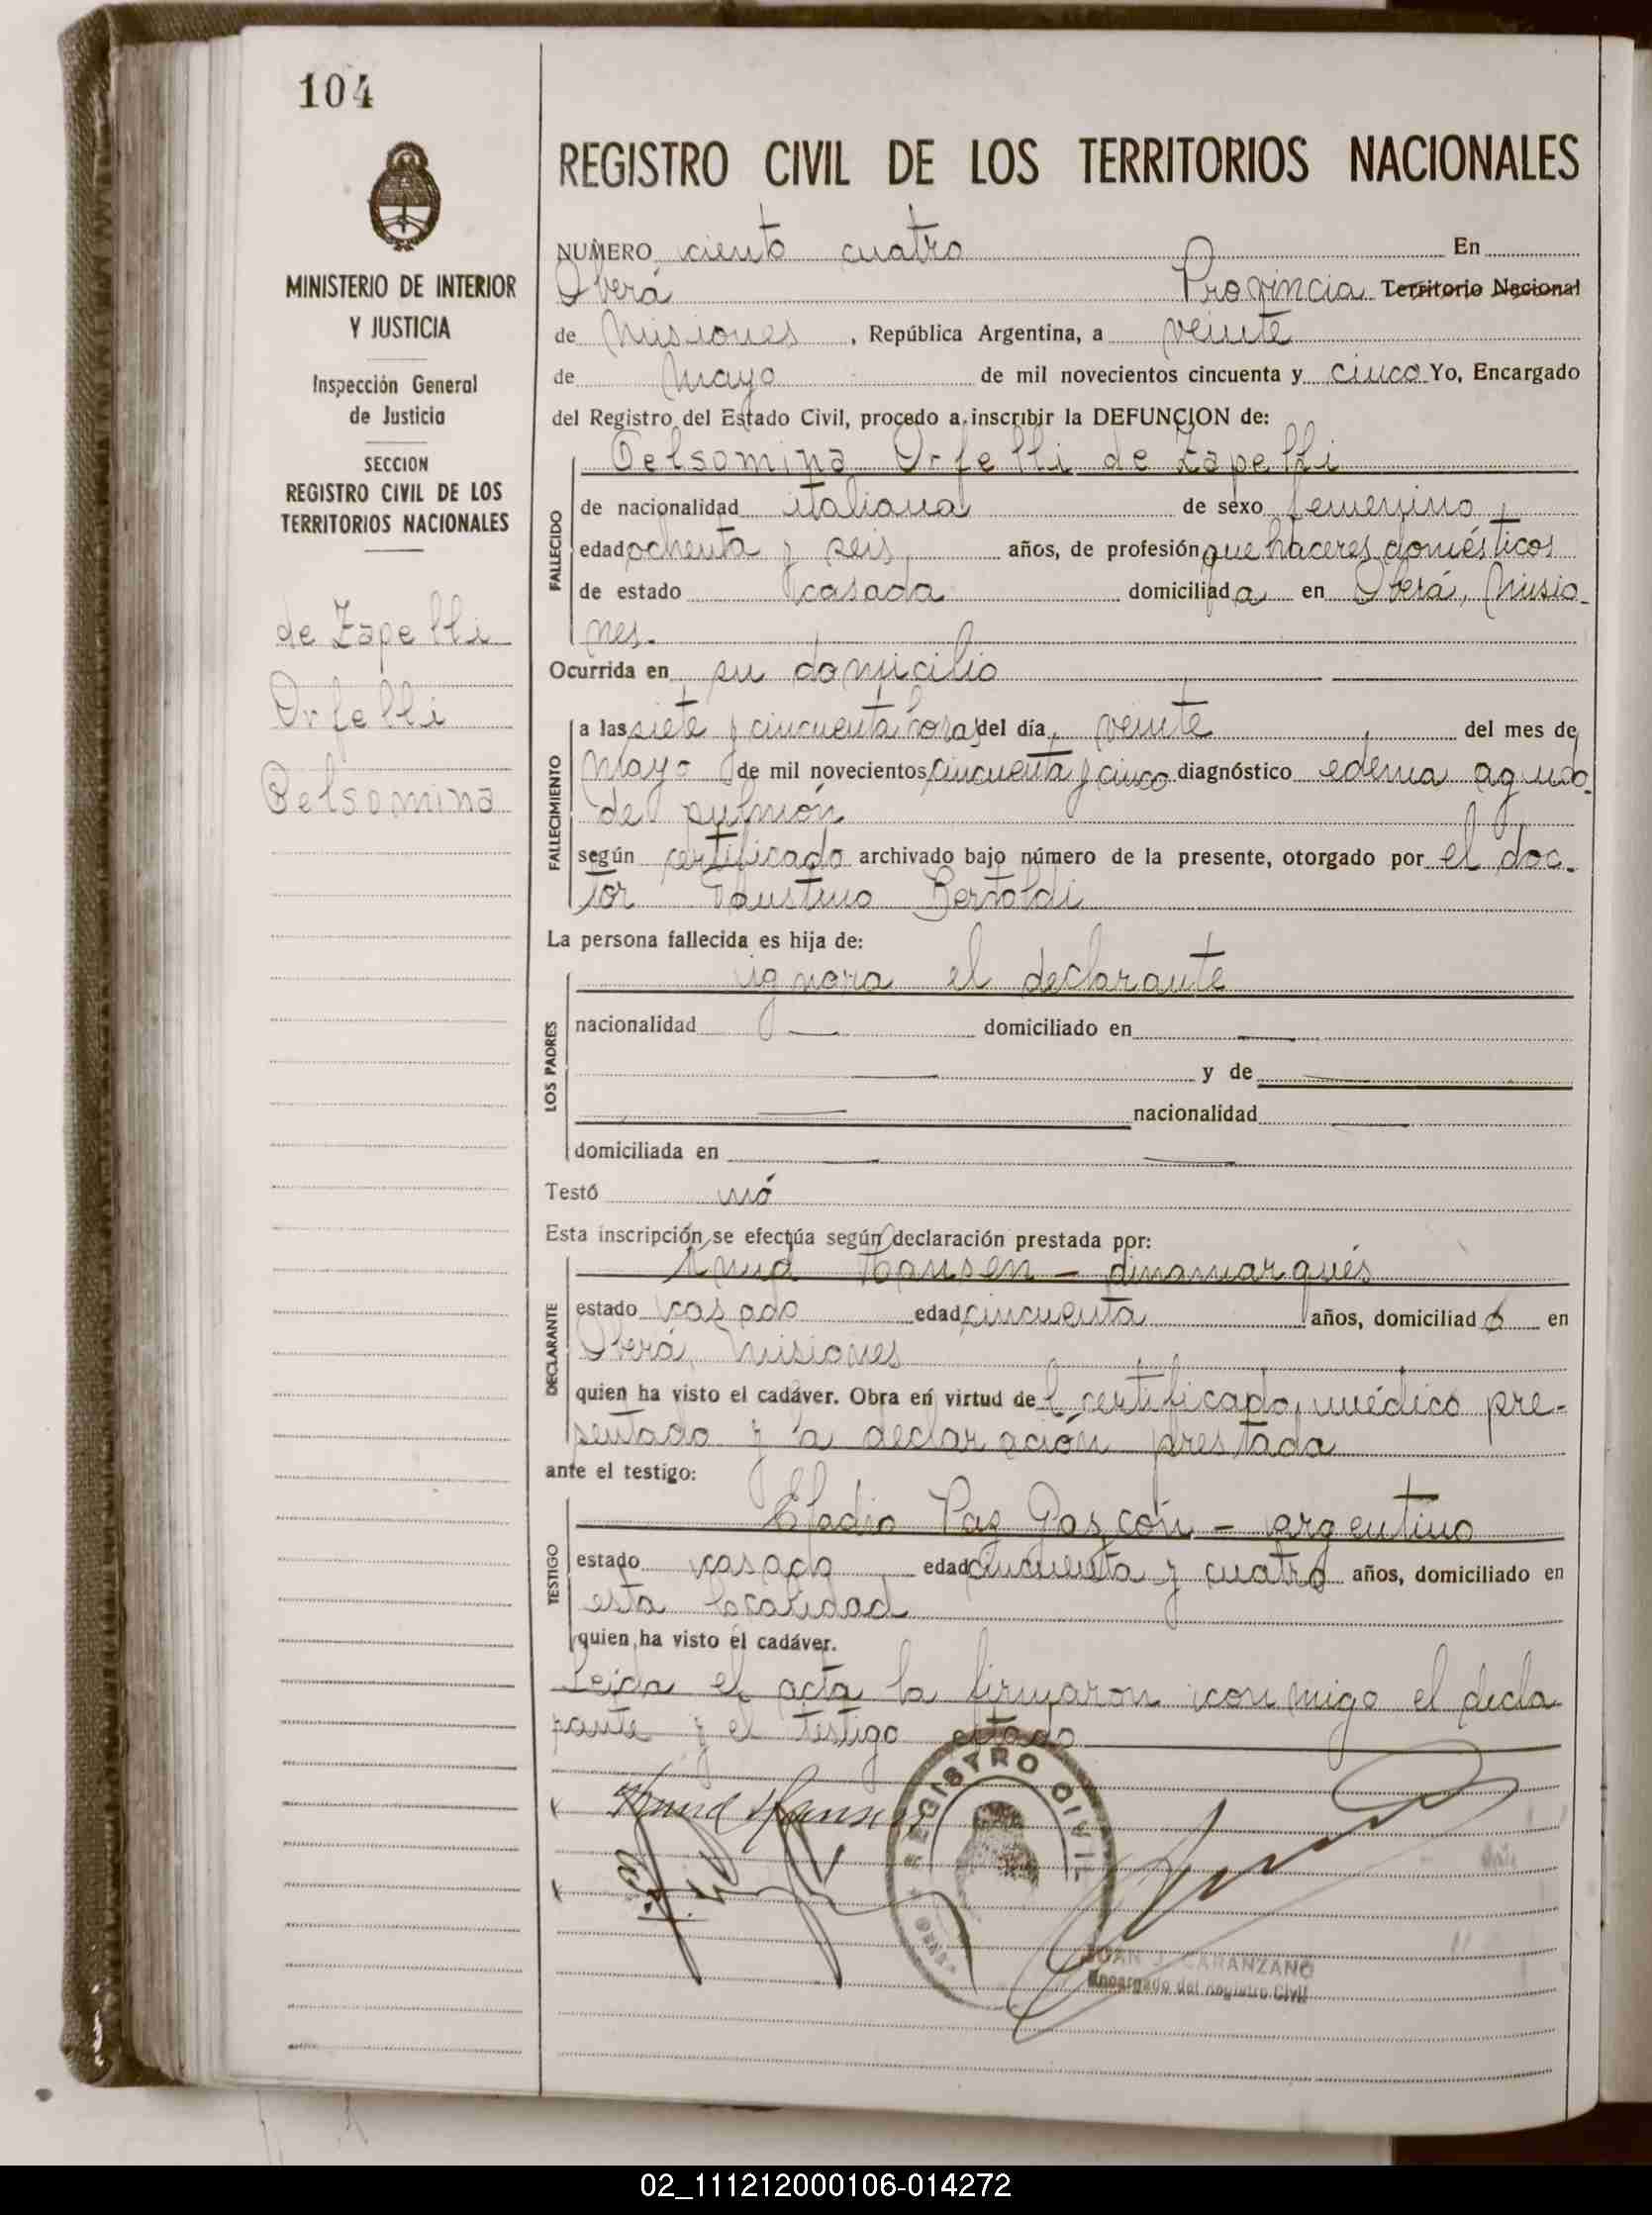 104
MINISTERIO DE INTERIOR
Y JUSTICIA
Inspección General
de Justicia
SECCION
REGISTRO CIVIL DE LOS
TERRITORIOS NACIONALES
de Zapelli
Orfelli
Gelsomina
REGISTRO CIVIL DE LOS TERRITORIOS NACIONALES
NUMERO ciento cuatro En
Oberá Provincia Territorio Nacional
de Misiones, República Argentina, a veinte
de Mayo de mil novecientos cincuenta y cinco Yo, Encargado
del Registro del Estado Civil, procedo a inscribir la DEFUNCION de:
FALLECIDO
Gelsomina Orfelli de Zapelli
de nacionalidad italiana de sexo femenino,
edad ochenta y seis años, de profesión que haceres domésticos
de estado casada domiciliada en Oberá, Misio-
nes.
Ocurrida en su domicilio
FALLECIMIENTO
a las siete y cincuenta horas del día veinte del mes de
Mayo de mil novecientos cincuenta y cinco diagnóstico edema agudo
de pulmón
según certificado archivado bajo número de la presente, otorgado por el doc-
tor Faustino Bertoldi
La persona fallecida es hija de:
LOS PADRES
ignora el declarante
nacionalidad — domiciliado en —
— y de —
— nacionalidad —
domiciliada en — —
Testó nó
Esta inscripción se efectúa según declaración prestada por:
DECLARANTE
Knud Hansen - dinamarqués
estado casado edad cincuenta años, domiciliado en
Oberá, Misiones
quien ha visto el cadáver. Obra en virtud del certificado médico pre-
sentado y la declaración prestada
ante el testigo:
TESTIGO
Eladio Paz Gascón - argentino
estado casado edad cincuenta y cuatro años, domiciliado en
esta localidad
quien ha visto el cadáver.
Leida el acta la firmaron conmigo el decla
rante y el testigo citado
Knud Hansen
REGISTRO CIVIL
CARANZANO
Encargado del Registro Civil
02_111212000106-014272